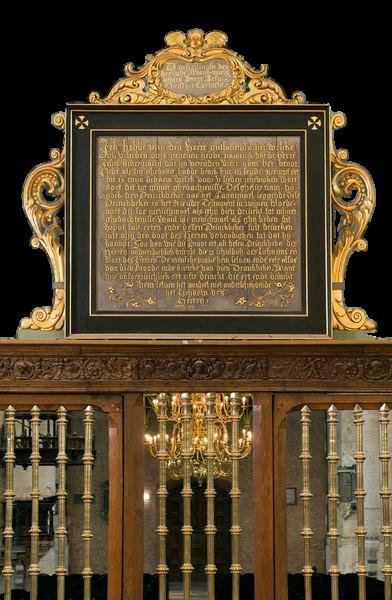 D'instellinghe des
heylighe Avondtmaels
onses Heere Jesu
Christi. 1 Corinth. 11
Ick hebbe van den Heere ontfanghen het welcke
Ick u lieden oock gegeven hebbe namelick dat de Heere
Jesus in der nacht doe in verraden wert nam het broot
Ende als hy ghedanckt hadde brack hy't en seyde neemet eet
dat is mijn lichaem welck voor u lieden ghebroken wort
doet dit tot mijner ghedachtenisse. Desghelijcx nam hy
oock den Drinckbeker nae het Avontmael segghende Dese
Drinckbeker is het Nieuwe Testament in mijnen bloede
doet dit soo menichmael als ghy dien drinckt tot mijner
ghedachtenisse. Want soo menichmael als ghy desen dit
Broot sult eeten ende desen Drinckbeker sult drincken
sult ghy den doot des Heeren verkondighen tot dat hy
komt. Soo dan wie dit Broot eet oft desen Drinckbeker des
Heeren onweerdichlick drinckt die is schuldich des Lichaems en
bloets des Heeren. De mensche proeve hem selven ende ete alsoo
van dien Broode ende drincke van dien Drinckbeker. Want
wie onweerdichlick eet ofte drinckt die eet ende drinckt
hem selven het oordeel niet onderscheydende
het Lichaem des
Heeren